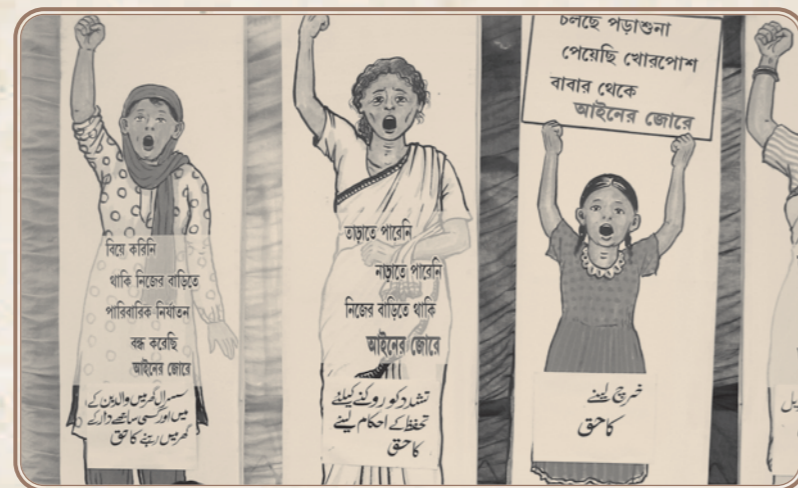 বিয়ে করিনি
থাকি নিজের বাড়িতে
পারিবারিক নির্যাতন
বন্ধ করেছি
আইনের জোরে
سسرال گھر میں والدین کے
میں اور کسی ساتھے دار کے
گھر میں رہنے کا حق
তাড়াতে পারেনি
নাড়াতে পারেনি
নিজের বাড়িতে থাকি
আইনের জোরে
تشدد کو روکنے کیلئے
تحفظ کے احکام لینے
کا حق
চলছে পড়াশুনা
পেয়েছি খোরপোশ
বাবার থেকে
আইনের জোরে
خرچ لینے
کا حق